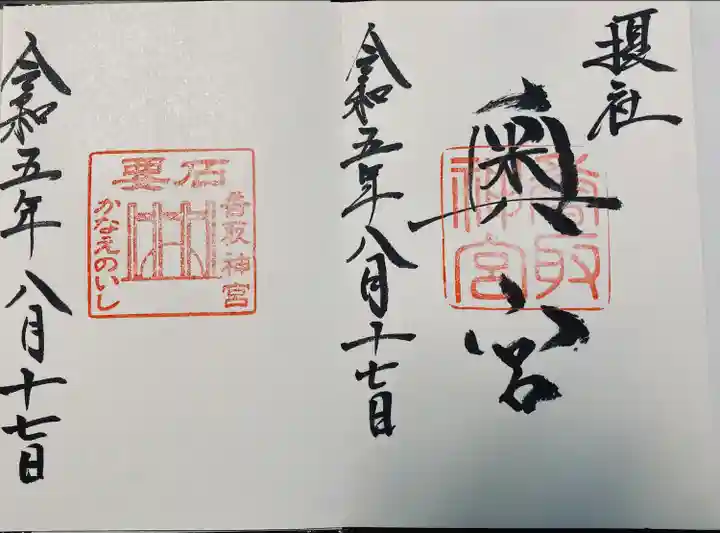 摂社
奥宮
香取
神宮
令和五年八月十七日
香取神宮
要石
かなえのいし
令和五年八月十七日